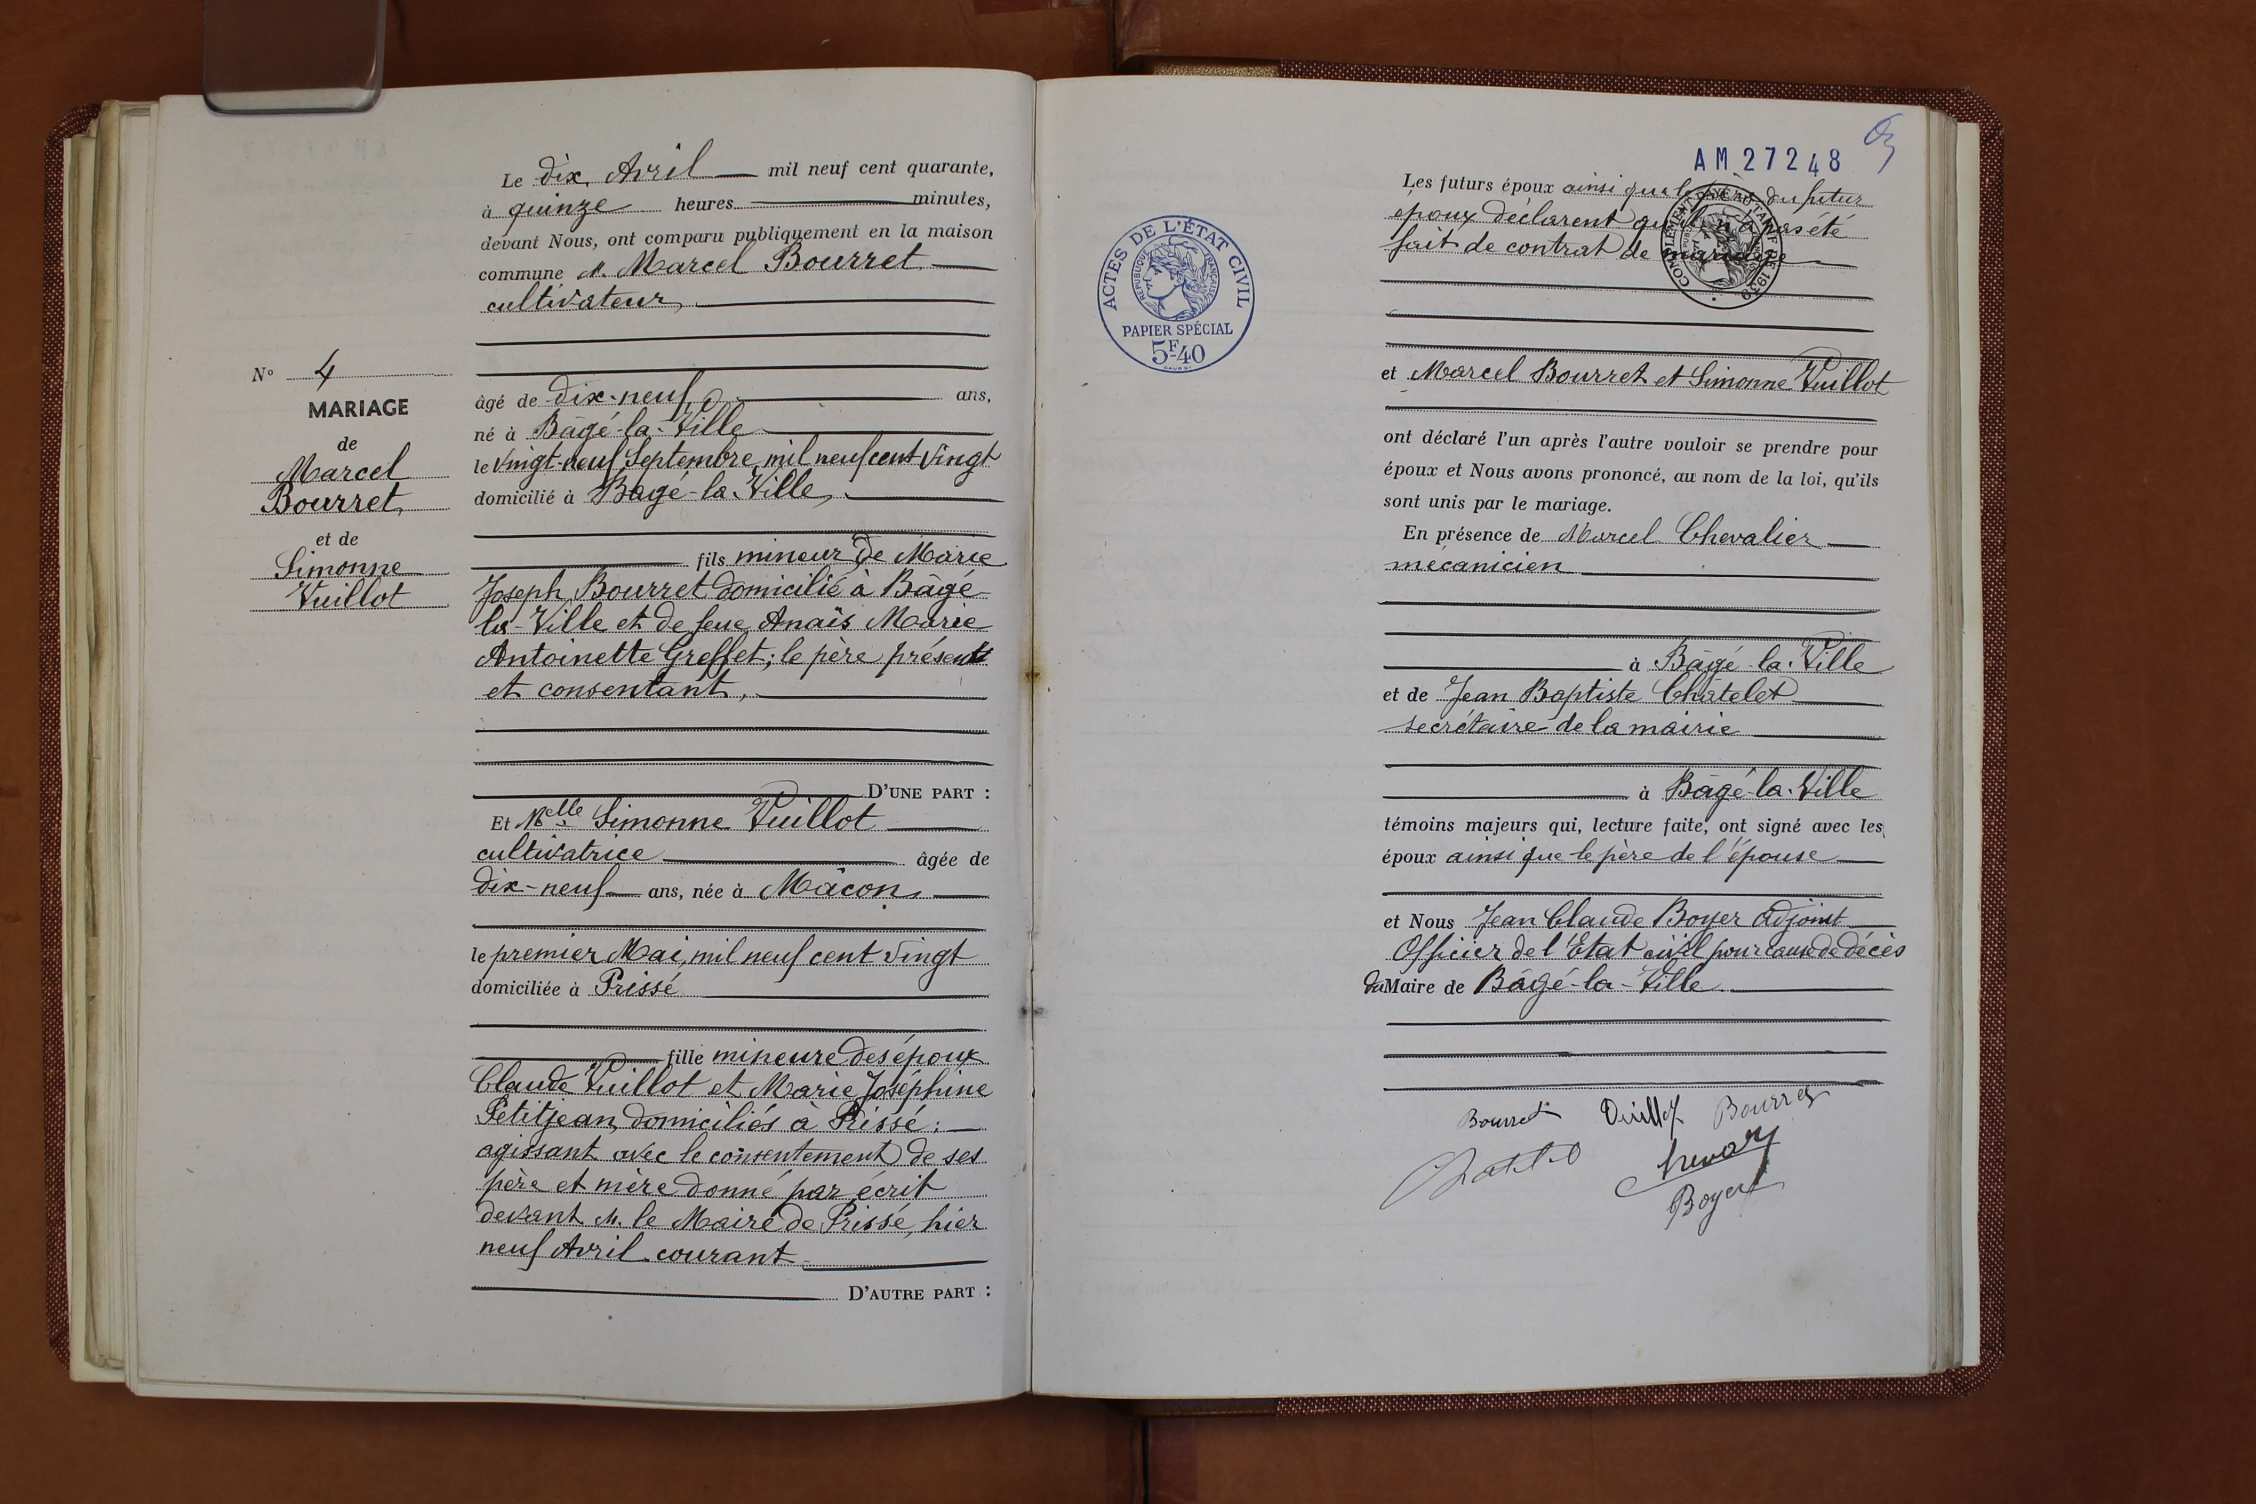 Le dix Avril mil neuf cent quarante,
à quinze heures minutes,
devant Nous, ont comparu publiquement en la maison
commune M. Marcel Bourret
cultivateur,
N° 4
MARIAGE
de
Marcel
Bourret,
et de
Simonne
Vuillot
âgé de dix-neuf ans,
né à Bâgé-la-Ville
le vingt-neuf Septembre mil neuf cent vingt
domicilié à Bâgé-la-Ville,
fils mineur de Marie
Joseph Bourret domicilié à Bâgé-
la-Ville et de feue Anaïs Marie
Antoinette Greffet; le père présent
et consentant,
D'UNE PART :
Et Melle Simonne Vuillot
cultivatrice âgée de
dix-neuf ans, née à Mâcon,
le premier Mai, mil neuf cent vingt
domiciliée à Prissé
fille mineure des époux
Claude Vuillot et Marie Joséphine
Petitjean, domiciliés à Prissé;
agissant avec le consentement de ses
père et mère donné par écrit
devant M. le Maire de Prissé, hier
neuf Avril courant
D'AUTRE PART :
AM 27248
ACTES DE L'ÉTAT CIVIL
RÉPUBLIQUE FRANÇAISE
PAPIER SPÉCIAL
5F40
COMPLÉMENT PAYÉ AU TARIF DE 1939
Les futurs époux ainsi que le père du futur
époux déclarent qu'il n'a pas été
fait de contrat de mariage
et Marcel Bourret et Simonne Vuillot
ont déclaré l'un après l'autre vouloir se prendre pour
époux et Nous avons prononcé, au nom de la loi, qu'ils
sont unis par le mariage.
En présence de Marcel Chevalier
mécanicien
à Bâgé-la-Ville
et de Jean Baptiste Chatelet
secrétaire de la mairie
à Bâgé-la-Ville
témoins majeurs qui, lecture faite, ont signé avec les
époux ainsi que le père de l'épouse
et Nous Jean Claude Boyer adjoint
Officier de l'Etat civil pour cause de décès
du Maire de Bâgé-la-Ville.
Bourret Vuillot Bourret
Boyer